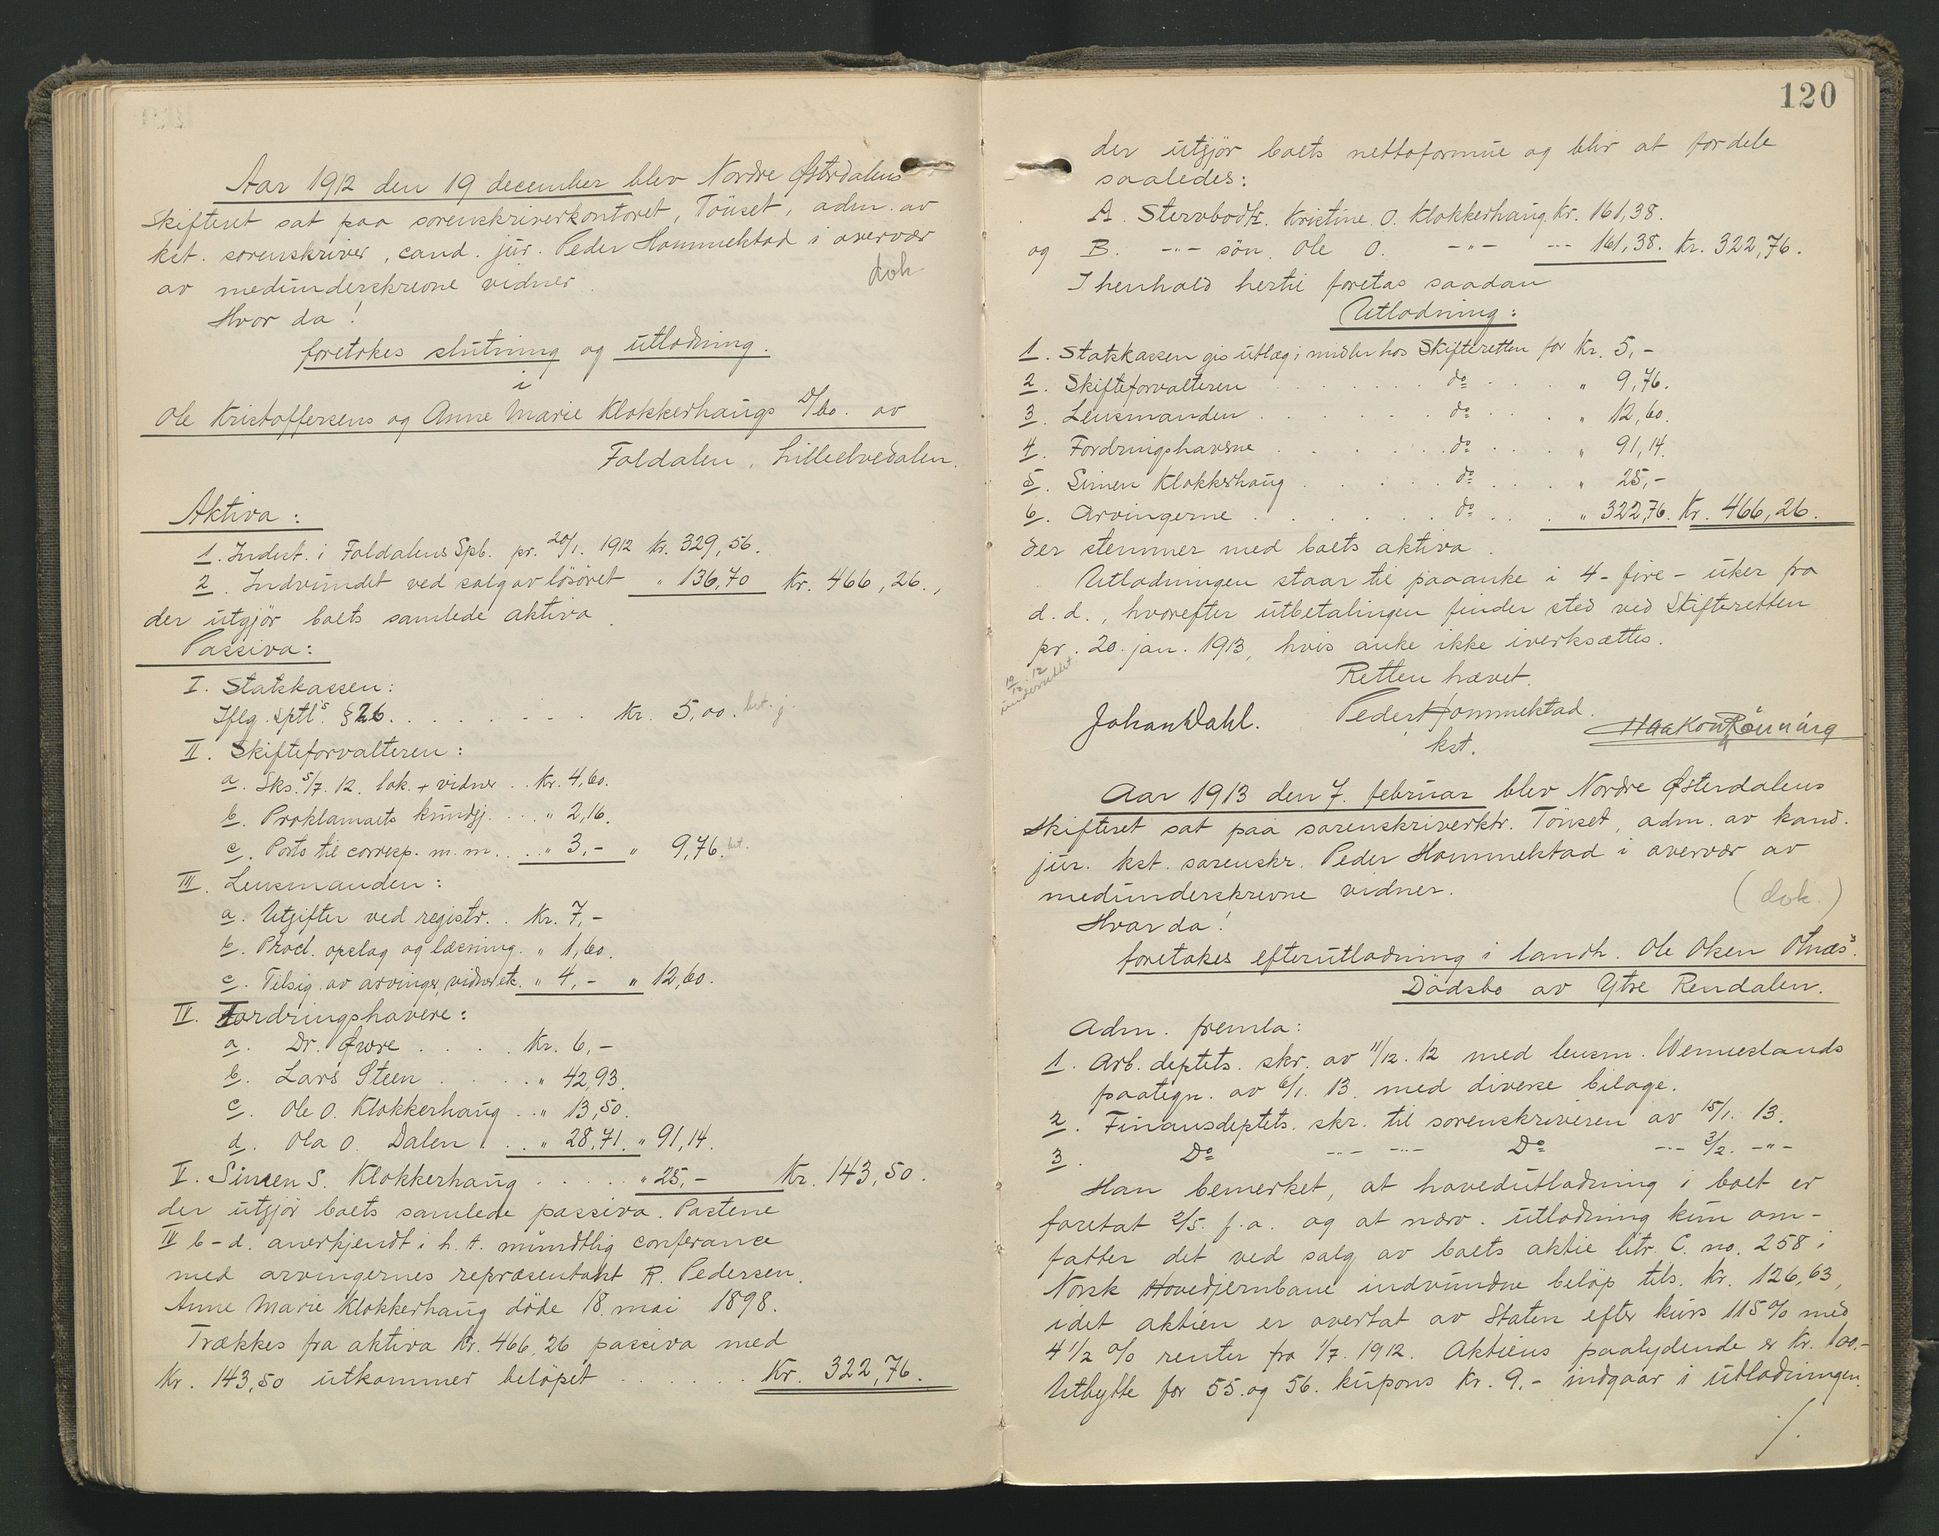 Aar 1912 den 19 december blev Nordre Østerdalens
Skifteret sat paa sorenskriverkontoret, Tönset, adm. av
kst. sorenskriver, cand. jur. Peder Hommelstad i overvær
av medunderskrevne vidner.
dok
Hvor da!
foretokes slutning og utlodning
i
Ole Kristoffersens og Anne Marie Klokkerhaugs D/bo. av
Foldalen, Lilleelvedalen.
Aktiva:
1. Indest. i Foldalens Spb. pr. 20/1. 1912 Kr. 329,56.
2. Indvundet ved salg av lösöret " 136,70 Kr. 466,26.,
der utgjør boets samlede aktiva.
Passiva:
I. Statskassen:
Iflg. sptl's § 26. . . . . . . . . Kr. 5,00.
II. Skifteforvalteren:
a. Sks. 5/7. 12. lok. + vidner . . Kr. 4,60.
b. Proklamaets kundgj. . . . " 2,16.
c. Porto til corresp. m. m. . . " 3,- " 9,76. bet.
III. Lensmanden:
a. Utgifter ved registr. . Kr. 7,-
b. Procl. opslag og læsning. " 1,60.
c. Tilsig. av arvinger, vidner etc. " 4,- " 12,60.
IV. Fordringshavere:
a. Dr. Øwre . . . . . Kr. 6,-
b. Lars Steen . . . . . " 42,93.
c. Ole O. Klokkerhaug . . " 13,50.
d. Ola O. Dalen . . . " 28,71. " 91,14.
V. Simen S. Klokkerhaug . . . . . " 25,- Kr. 143,50.
der utgjør boets samlede passiva. Postene
IV b-d. anerkjendt i h. t. mundtlig conferance
med arvingernes repræsentant R. Pedersen.
Anne Marie Klokkerhaug døde 18. mai 1898.
Trækkes fra aktiva Kr. 466,26 passiva med
Kr. 143,50 utkommer beløpet . . . . . . Kr. 322,76.
120
der utgjør boets nettoformue og blir at fordele
saaledes:
A. Stervbodtr. Kristine O. Klokkerhaug Kr. 161,38.
og B. -"- søn, Ole O. -"- --- 161,38. Kr. 322,76.
I henhold hertil foretas saadan
Utlodning:
1. Statskassen gis utlæg i midler hos Skifteretten for Kr. 5,-
2. Skifteforvalteren . . . . . . . do . . . " 9,76.
3. Lensmanden . . . . . . . do . . . " 12,60.
4. Fordringshaverne . . . . . . . do . . . " 91,14.
5. Simen Klokkerhaug . . . . . do . . . " 25,-
6. Arvingerne . . . . . . . do . . . " 322,76. Kr. 466,26.
der stemmer med boets aktiva.
Utlodningen staar til paaanke i 4-fire-uker fra
d. d., hvorefter utbetalingen finder sted ved Skifteretten
pr. 20. jan. 1913, hvis anke ikke iverksættes.
19/12. 12
Retten hævet.
Johan Dahl. Peder Hommelstad. Haakon Rönning
kst.
Aar 1913 den 7. februar blev Nordre Østerdalens
Skifteret sat paa sorenskriverktr. Tönset, adm. av kand.
jur. kst. sorenskr. Peder Hommelstad i overvær av
medunderskrevne vidner.
(dok.)
Hvor da!
foretokes efterutlodning i landh. Ole Olsen Otnæs's
Dødsbo av Ytre Rendalen.
Adm. fremla:
1. Arb. deptets. skr. av 11/12. 12 med lensm. Wenneslands
paategn. av 6/1. 13. med diverse bilage.
2. Finansdeptets. skr. til sorenskriveren av 15/1. 13.
3. Do --- --- Do --- 3/2. -"-
Han bemerket, at hovedutlodning i boet er
foretat 2/5. f. a. og at nærv. utlodning kun om-
fatter det ved salg av boets aktie litr. C. no. 258 i
Norsk Hovedjernbane indvundne beløp tils. Kr. 126,63,
idet aktien er overtat av Staten efter kurs 115 % med
4 1/2 % renter fra 1/7. 1912. Aktiens paalydende er Kr. 100.-
Utbytte for 55. og 56. kupons Kr. 9.- indgaar i utlodningen.
./.